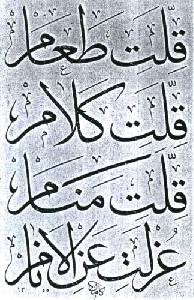 قلّت طعام
قلّت كلام
قلّت منام
عزلت عن الانام